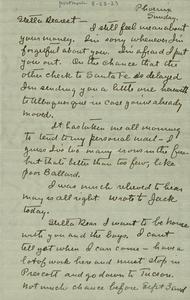 Postmark 8-23-23
Phoenix
Sunday.
Stella Dearest — I still feel mean about
your money. I'm sorry when I'm
forgetful about you. I'm afraid I put
you out. On the chance that the
other check to Santa Fe is delayed
I'm sending you a little one herewith
to Albuquerque in case you already
moved.
It has taken me all morning
to tend to my personal mail — I
guess I've too many irons in the fire
but that's better than too few, like
poor Ballard.
I was much relieved to hear
Mary is all right. Wrote to Jack
today.
Stella Dear I want to be home
with you and the boys. I can't
tell yet when I can come — have a
lot of work here and must stop in
Prescott and go down to Tucson.
Not much chance before Sept 2nd